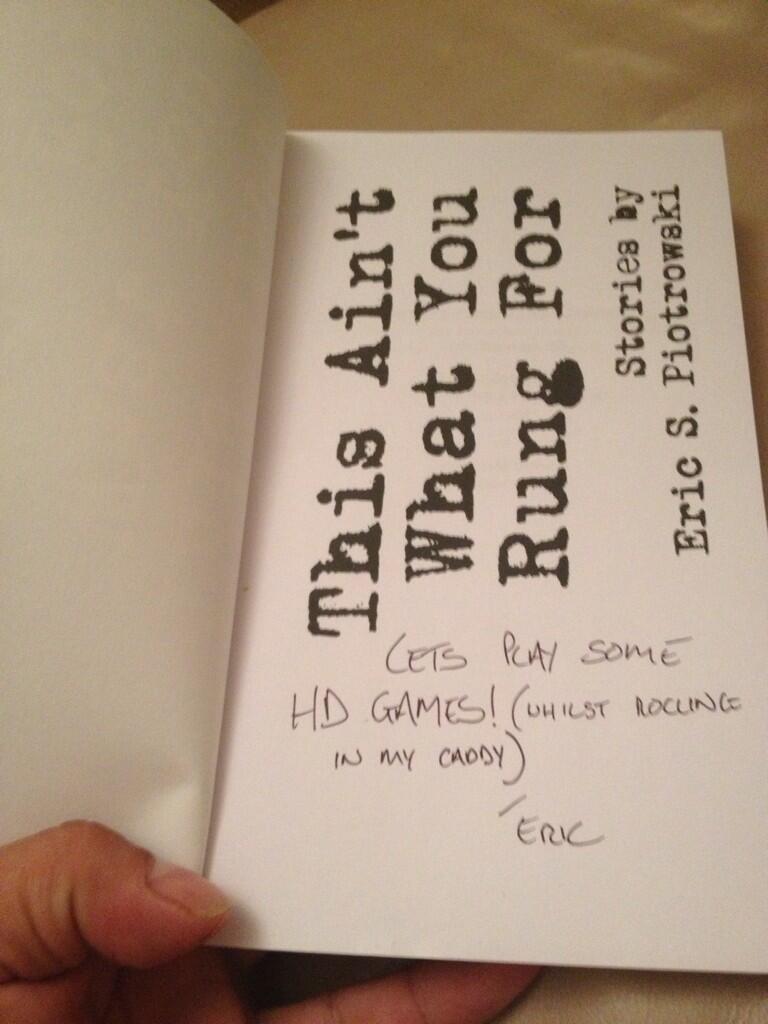 This Ain't
What You
Rung For
Stories by
Eric S. Piotrowski
LETS PLAY SOME
HD GAMES! (WHILST ROLLING
IN MY CADDY)
/ERIC